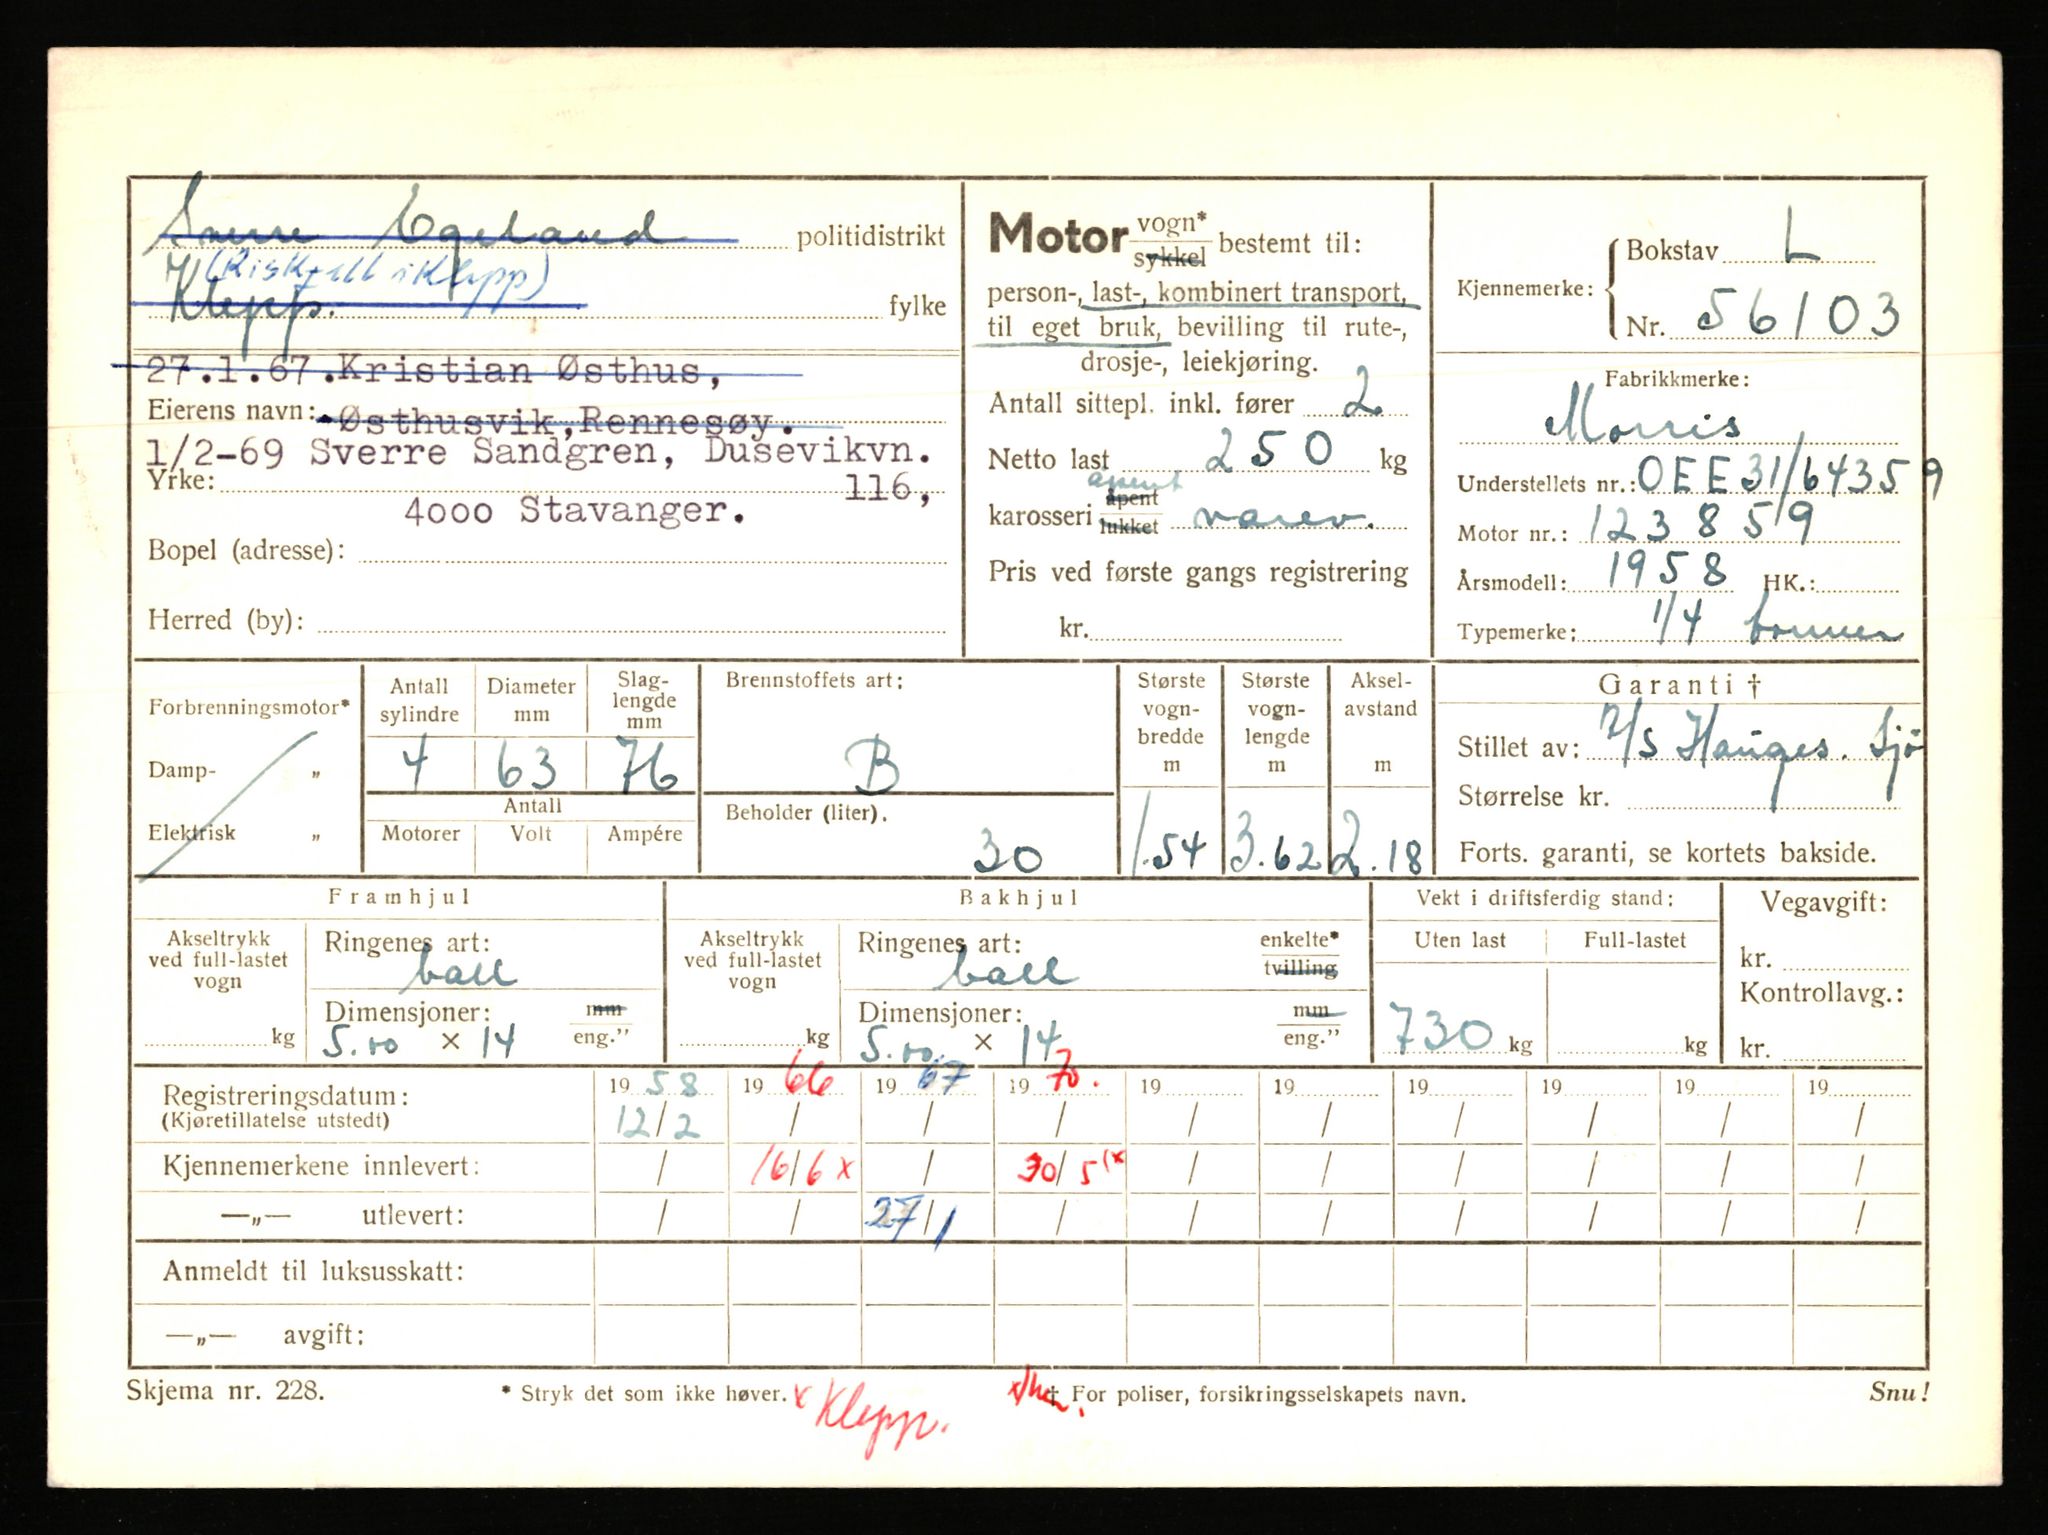 Snorre Egeland politidistrikt
(Riskjell i Klepp)
Klepp. fylke
27.1.67.Kristian Østhus,
Eierens navn: Østhusvik,Rennesøy.
1/2-69 Sverre Sandgren, Dusevikvn.
Yrke: 116,
4000 Stavanger.
Bopel (adresse):
Herred (by):
Motor vogn* sykkel bestemt til:
person-, last-, kombinert transport,
til eget bruk, bevilling til rute-,
drosje-, leiekjøring.
Antall sittepl. inkl. fører 2
Netto last 250 kg
åpent
karosseri åpent lukket varev.
Pris ved første gangs registrering
kr.
Kjennemerke: Bokstav L
Nr. 56103
Fabrikkmerke:
Morris
Understellets nr.: OEE31/64359
Motor nr.: 123859
Årsmodell: 1958 HK.:
Typemerke: 1/4 tonner
Forbrenningsmotor*
Damp- „
Elektrisk „
Antall sylindre
4
Diameter mm
63
Slag-lengde mm
76
Antall
Motorer Volt Ampére
Brennstoffets art:
B
Beholder (liter).
30
Største vogn-bredde m
1.54
Største vogn-lengde m
3.62
Aksel-avstand m
2.18
Garanti †
Stillet av: A/S Hauges. Sjø
Størrelse kr.
Forts. garanti, se kortets bakside.
Framhjul
Akseltrykk ved full-lastet vogn
kg
Ringenes art:
ball
Dimensjoner: mm
5.00 × 14 eng.”
Bakhjul
Akseltrykk ved full-lastet vogn
kg
Ringenes art: enkelte*
ball tvilling
Dimensjoner: mm
5.00 × 14 eng.”
Vekt i driftsferdig stand:
Uten last Full-lastet
730 kg kg
Vegavgift:
kr.
Kontrollavg.:
kr.
Registreringsdatum: 1958 1966 1967 1970. 19 19 19 19 19 19
(Kjøretillatelse utstedt) 12/2 / / / / / / / / /
Kjennemerkene innlevert: / 16/6 x / 30/5 (x / / / / / /
—„— utlevert: / / 27/1 / / / / / / /
Anmeldt til luksusskatt:
—„— avgift:
Skjema nr. 228. * Stryk det som ikke høver. x Klepp. † For poliser, forsikringsselskapets navn. Snu!